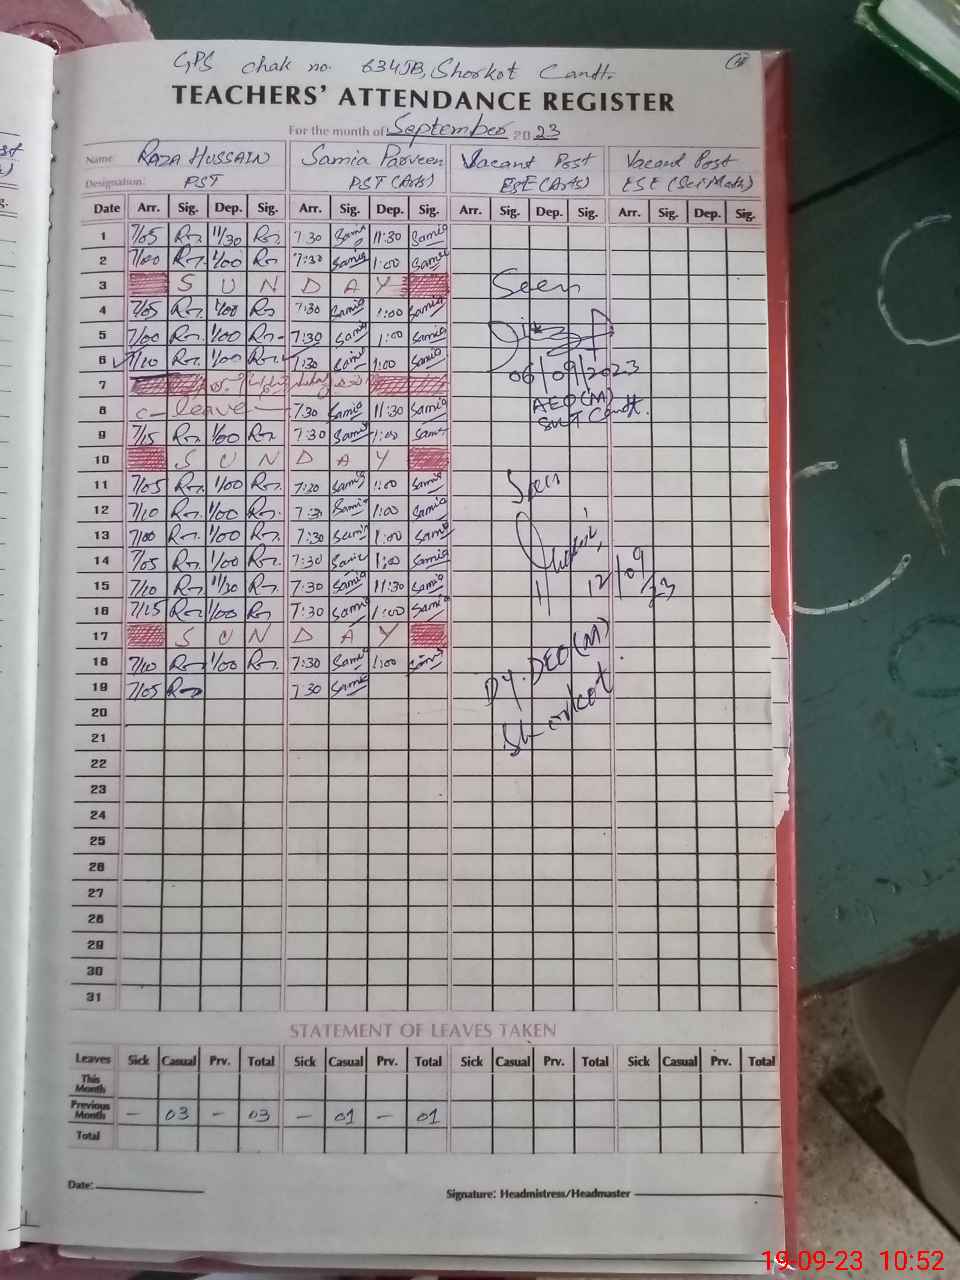 GPS Chak no. 634JB, Shorkot Cantt.
TEACHERS' ATTENDANCE REGISTER
For the month of September 2023
Name: RAZA HUSSAIN Samia Parveen Vacant Post Vacant Post
Designation: PST PST (Arts) ESE (Arts) ESE (Sci Math)
Date Arr. Sig. Dep. Sig. Arr. Sig. Dep. Sig. Arr. Sig. Dep. Sig. Arr. Sig. Dep. Sig.
1 7/05 11/30 7:30 Samia 11:30 Samia
2 7/00 1/00 7:30 Samia 1:00 Samia
3 S U N D A Y Seen
4 7/05 1/00 7:30 Samia 1:00 Samia
5 7/00 1/00 7:30 Samia 1:00 Samia
6 7/10 1/00 7:30 Samia 1:00 Samia
7 06/09/2023
8 C- leave 7:30 Samia 11:30 Samia AEO(M)
9 7/15 1/00 7:30 Samia 1:00 Samia
10 S U N D A Y
11 7/05 1/00 7:30 Samia 1:00 Samia Seen
12 7/10 1/00 7:30 Samia 1:00 Samia
13 7/00 1/00 7:30 Samia 1:00 Samia
14 7/05 1/00 7:30 Samia 1:00 Samia
15 7/10 11/30 7:30 Samia 11:30 Samia 12/09/23
16 7/15 1/00 7:30 Samia 1:00 Samia
17 S U N D A Y
18 7/10 1/00 7:30 Samia 1:00 Samia Dy. DEO(M)
19 7/05 7:30 Samia
20 Shorkot.
21
22
23
24
25
26
27
28
29
30
31
STATEMENT OF LEAVES TAKEN
Leaves Sick Casual Prv. Total Sick Casual Prv. Total Sick Casual Prv. Total Sick Casual Prv. Total
This Month
Previous Month - 03 - 03 - 01 - 01
Total
Date:
Signature: Headmistress/Headmaster
19-09-23 10:52